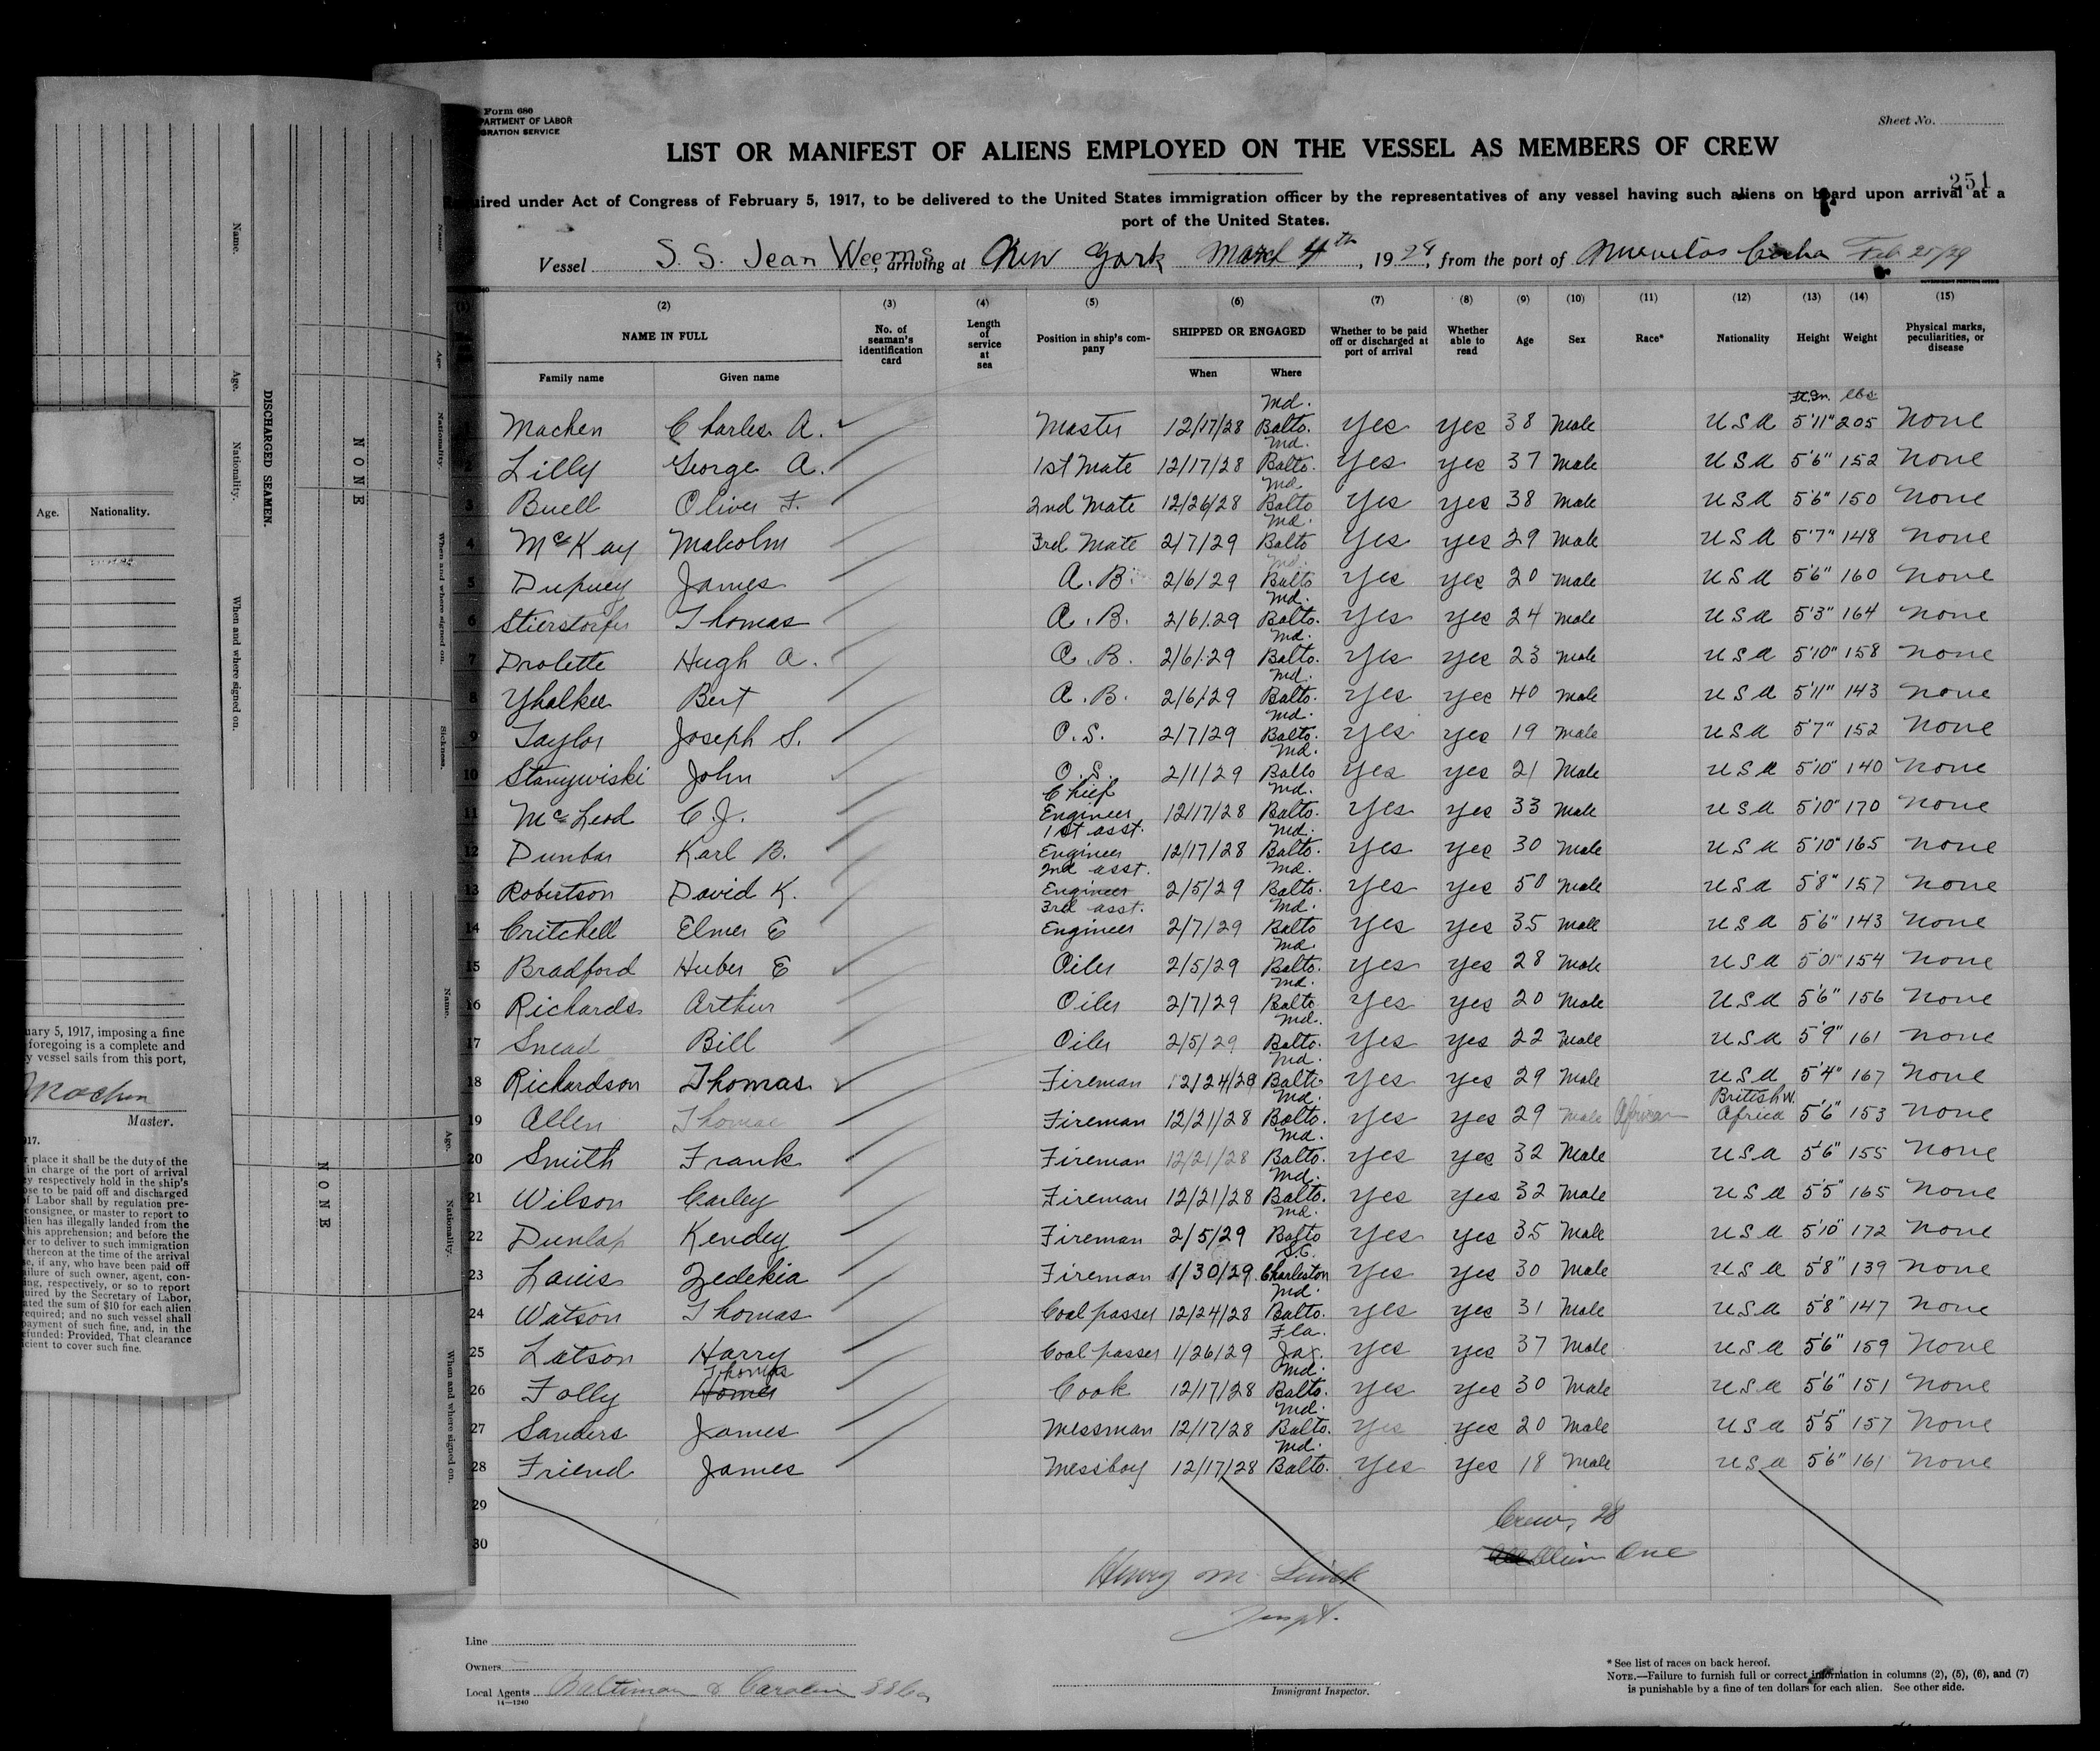 Form 686
PARTMENT OF LABOR
GRATION SERVICE
Sheet No.
LIST OR MANIFEST OF ALIENS EMPLOYED ON THE VESSEL AS MEMBERS OF CREW
251
uired under Act of Congress of February 5, 1917, to be delivered to the United States immigration officer by the representatives of any vessel having such aliens on board upon arrival at a
port of the United States.
Vessel S. S. Jean Weems, arriving at New York March 4th, 1929, from the port of Nuevitas Cuba Feb 25/29
(1) (2) (3) (4) (5) (6) (7) (8) (9) (10) (11) (12) (13) (14) (15)
NAME IN FULL No. of seaman's identification card Length of service at sea Position in ship's company SHIPPED OR ENGAGED Whether to be paid off or discharged at port of arrival Whether able to read Age Sex Race* Nationality Height Weight Physical marks, peculiarities, or disease
Family name Given name When Where
Ft. In. lbs
Machen Charles A. Master 12/17/28 Balto. Md. Yes yes 38 Male USA 5'11" 205 None
2 Lilly George A. 1st Mate 12/17/28 Balto. Md. Yes yes 37 Male USA 5'6" 152 None
3 Buell Oliver F. 2nd Mate 12/26/28 Balto Md. Yes yes 38 Male USA 5'6" 150 None
4 McKay Malcolm 3rd Mate 2/7/29 Balto Md. Yes yes 29 Male USA 5'7" 148 None
5 Dupuey James A.B. 2/6/29 Balto Md. Yes yes 20 Male USA 5'6" 160 None
6 Stierstorfer Thomas A.B. 2/6/29 Balto. Md. Yes yes 24 Male USA 5'3" 164 None
7 Drolette Hugh A. A.B. 2/6/29 Balto. Md. Yes yes 23 Male USA 5'10" 158 None
8 Yhalkee Bert A.B. 2/6/29 Balto. Md. Yes yes 40 Male USA 5'11" 143 None
9 Taylor Joseph S. O.S. 2/7/29 Balto. Md. Yes yes 19 Male USA 5'7" 152 None
10 Stanywiski John O.S. 2/1/29 Balto Md. Yes yes 21 Male USA 5'10" 140 None
11 McLeod C.J. Chief Engineer 12/17/28 Balto. Md. Yes yes 33 Male USA 5'10" 170 None
12 Dunbar Karl B. 1st asst. Engineer 12/17/28 Balto. Md. Yes yes 30 Male USA 5'10" 165 None
13 Robertson David K. 2nd asst. Engineer 2/5/29 Balto. Md. Yes yes 50 Male USA 5'8" 157 None
14 Critchell Elmer E 3rd asst. Engineer 2/7/29 Balto Md. Yes yes 35 Male USA 5'6" 143 None
15 Bradford Huber E Oiler 2/5/29 Balto. Md. Yes yes 28 Male USA 154 None
16 Richards Arthur Oiler 2/7/29 Balto Md. Yes yes 20 Male USA 5'6" 156 None
17 Snead Bill Oiler 2/5/29 Balto. Md. Yes yes 22 Male USA 5'9" 161 None
18 Richardson Thomas Fireman 12/24/28 Balto Md. Yes yes 29 Male USA 5'4" 167 None
19 Allen Thomas Fireman 12/21/28 Balto. Md. Yes yes 29 Male African British W. Africa 5'6" 153 None
20 Smith Frank Fireman 12/21/28 Balto. Md. Yes yes 32 Male USA 5'6" 155 None
21 Wilson Carley Fireman 12/21/28 Balto. Md. Yes yes 32 Male USA 5'5" 165 None
22 Dunlap Kendey Fireman 2/5/29 Balto Md. Yes yes 35 Male USA 5'10" 172 None
23 Lauis Zedekia Fireman 1/30/29 Charleston S.C. Yes yes 30 Male USA 5'8" 139 None
24 Watson Thomas Coal passer 12/24/28 Balto. Md. Yes yes 31 Male USA 5'8" 147 None
25 Latson Harry Coal passer 1/26/29 Jax. Fla. Yes yes 37 Male USA 5'6" 159 None
26 Folly Thomas Homer Cook 12/17/28 Balto. Md. Yes yes 30 Male USA 5'6" 151 None
27 Sanders James Messman 12/17/28 Balto. Md. Yes yes 20 Male USA 5'5" 157 None
28 Friend James Messboy 12/17/28 Balto. Md. Yes yes 18 Male USA 5'6" 161 None
29
30
Crew, 28
Alien One
Henry M.
Inspt.
Line
Owners
Local Agents Baltimore & Carolina SS Co
14—1240
Immigrant Inspector.
* See list of races on back hereof.
NOTE.—Failure to furnish full or correct information in columns (2), (5), (6), and (7)
is punishable by a fine of ten dollars for each alien. See other side.
Name.
Age.
Nationality.
When and where signed on.
DISCHARGED SEAMEN.
NONE
Name.
Age.
Nationality.
When and where signed on.
Sickness.
NONE
Name.
Age.
Nationality.
When and where signed on.
Age. Nationality.
uary 5, 1917, imposing a fine
foregoing is a complete and
y vessel sails from this port,
Machen
Master.
917.
r place it shall be the duty of the
in charge of the port of arrival
ey respectively hold in the ship's
ose to be paid off and discharged
of Labor shall by regulation pre-
consignee, or master to report to
lien has illegally landed from the
his apprehension; and before the
er to deliver to such immigration
thereon at the time of the arrival
se, if any, who have been paid off
ailure of such owner, agent, con-
ng, respectively, or so to report
uired by the Secretary of Labor,
ated the sum of $10 for each alien
required; and no such vessel shall
payment of such fine, and, in the
efunded: Provided, That clearance
cient to cover such fine.